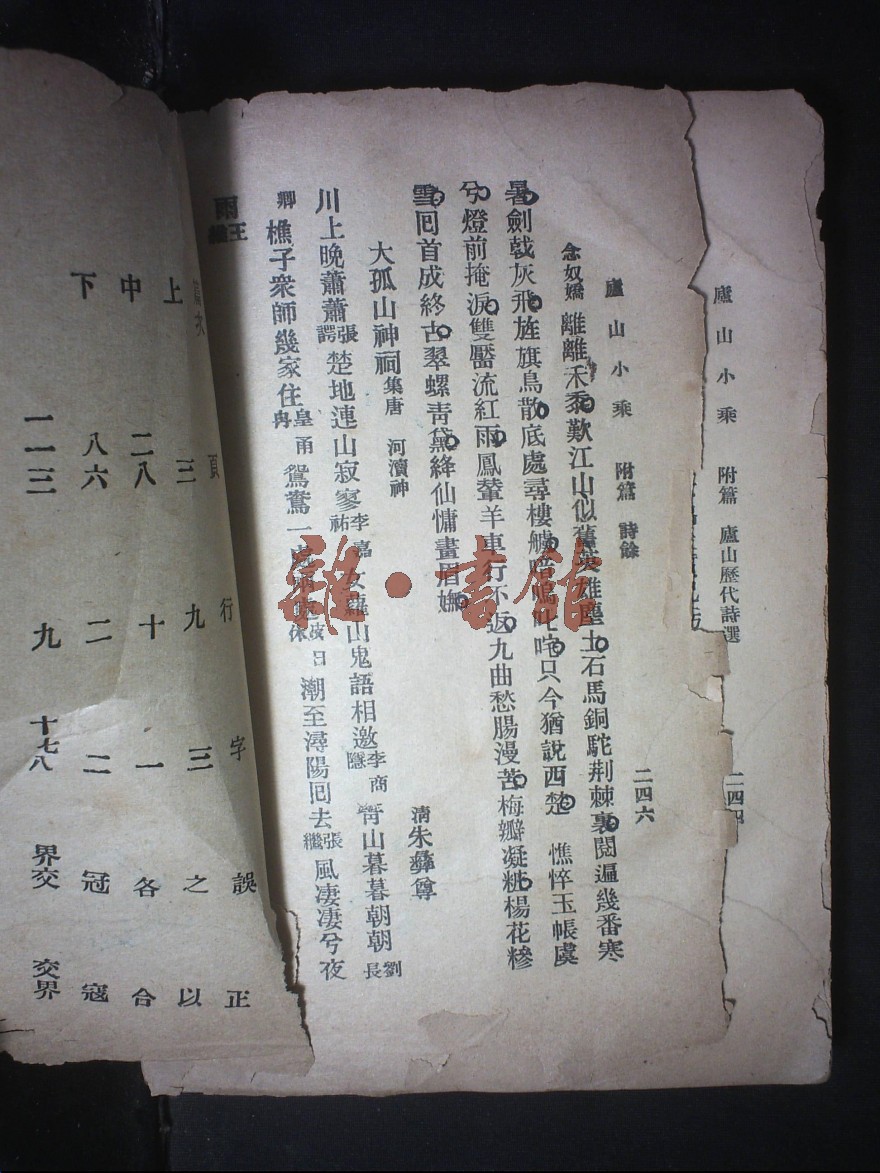 廬山小乘 附篇 廬山歷代詩選
二四四
廬山小乘 附篇 詩餘
二四六
念奴嬌 離離禾黍歎江山似舊英雄塵土石馬銅駝荆棘裏閱遍幾番寒
暑劍戟灰飛旌旗鳥散底處尋樓艣喑嗚叱咤只今猶說西楚 憔悴玉帳虞
兮燈前掩淚雙靨流紅雨鳳輦羊車行不返九曲愁腸漫苦梅瓣凝粧楊花糝
雪回首成終古翠螺青黛絳仙慵畫眉嫵
大孤山神祠集唐 河瀆神
清朱彝尊
川上晚蕭蕭張諤 楚地連山寂寥李嘉祐 女蘿山鬼語相邀李商隱 青山暮暮朝朝劉長
卿 樵子衆師幾家住皇甫冉 鴛鴦一處 日休 潮至潯陽回去張繼 風凄凄兮夜
雨王維
篇次 頁 行 字 誤 正
上 三 九 三 之 以
中 二八 十 一 各 合
下 八六 二 二 冠 寇
一一三 九 十七八 界交 交界
雜·書館